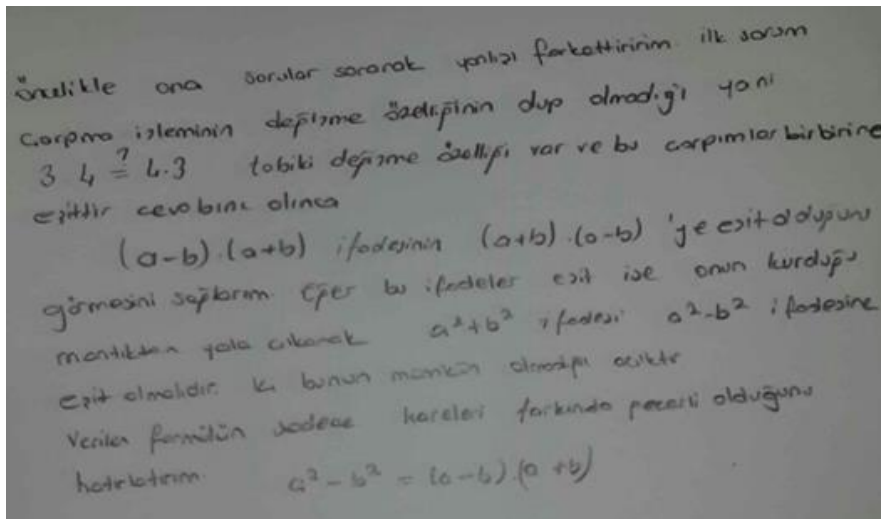 öncelikle ona sorular sorarak yanlışı farkettiririm. ilk sorum
Çarpma işleminin değişme özelliğinin olup olmadığı yani
3 4 ?= 4.3 tabiki değişme özelliği var ve bu çarpımlar birbirine
eşittir cevabını alınca
(a-b).(a+b) ifadesinin (a+b).(a-b) 'ye eşit olduğunu
görmesini sağlarım. Eğer bu ifadeler eşit ise onun kurduğu
mantıktan yola çıkarak a²+b² ifadesi a²-b² ifadesine
eşit olmalıdır. ki bunun mümkün olmadığı açıktır
Verilen formülün sadece kareleri farkında geçerli olduğunu
hatırlatırım. a² - b² = (a-b).(a+b)